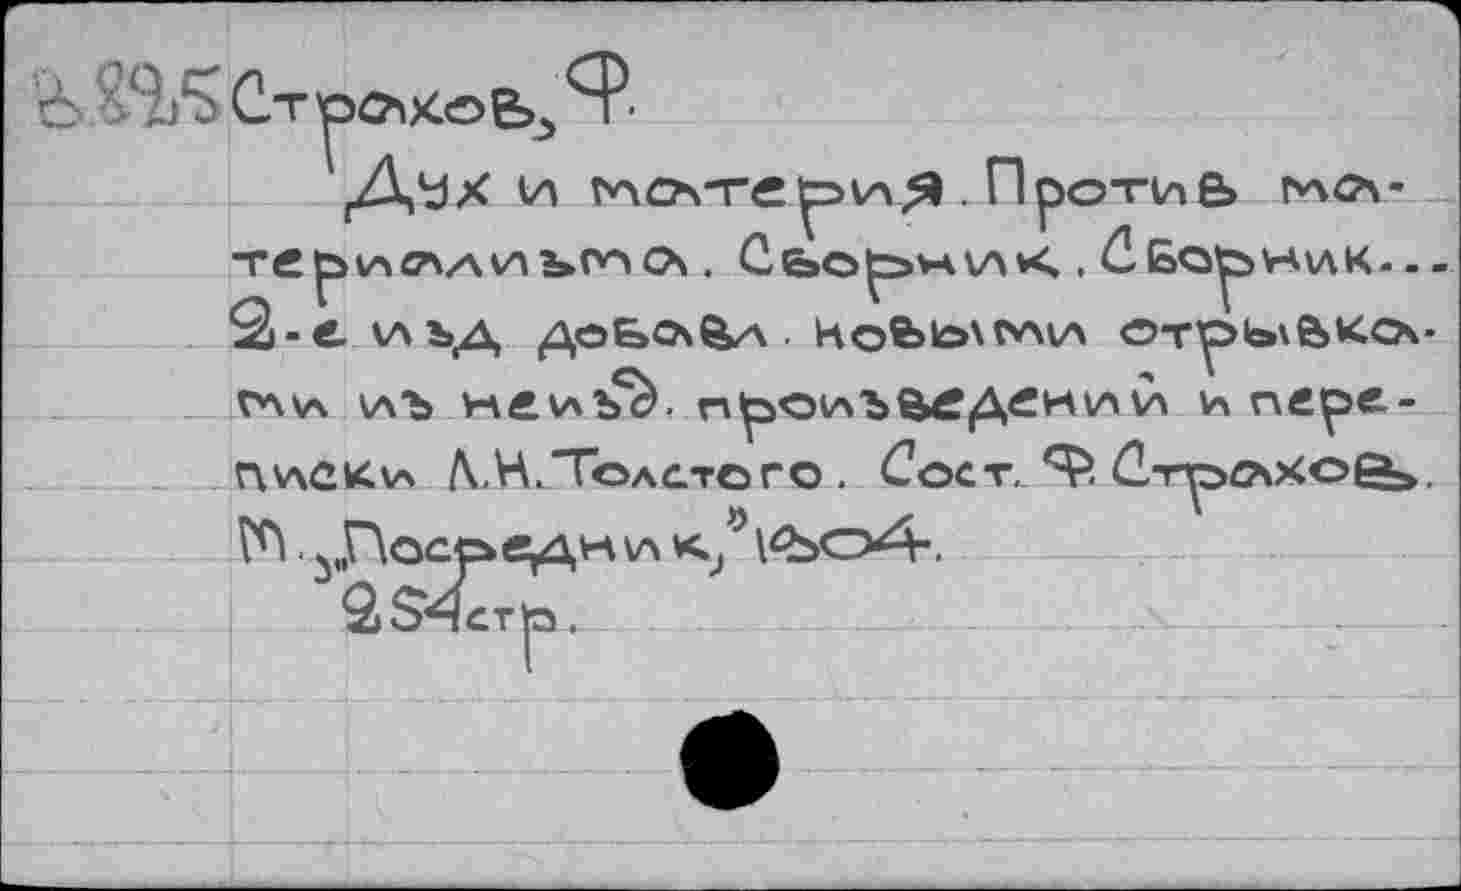 Страхов, Ф.
Дух и материя. Против ма-
териализма. Сборник. Сборник...
2-е изд добавл. новыми отрывка-
ми из неизд. произведений и пере-
писки Л.Н. Толстого. Сост. Ф. Страхов.
М., „Посредник,"
254стр.